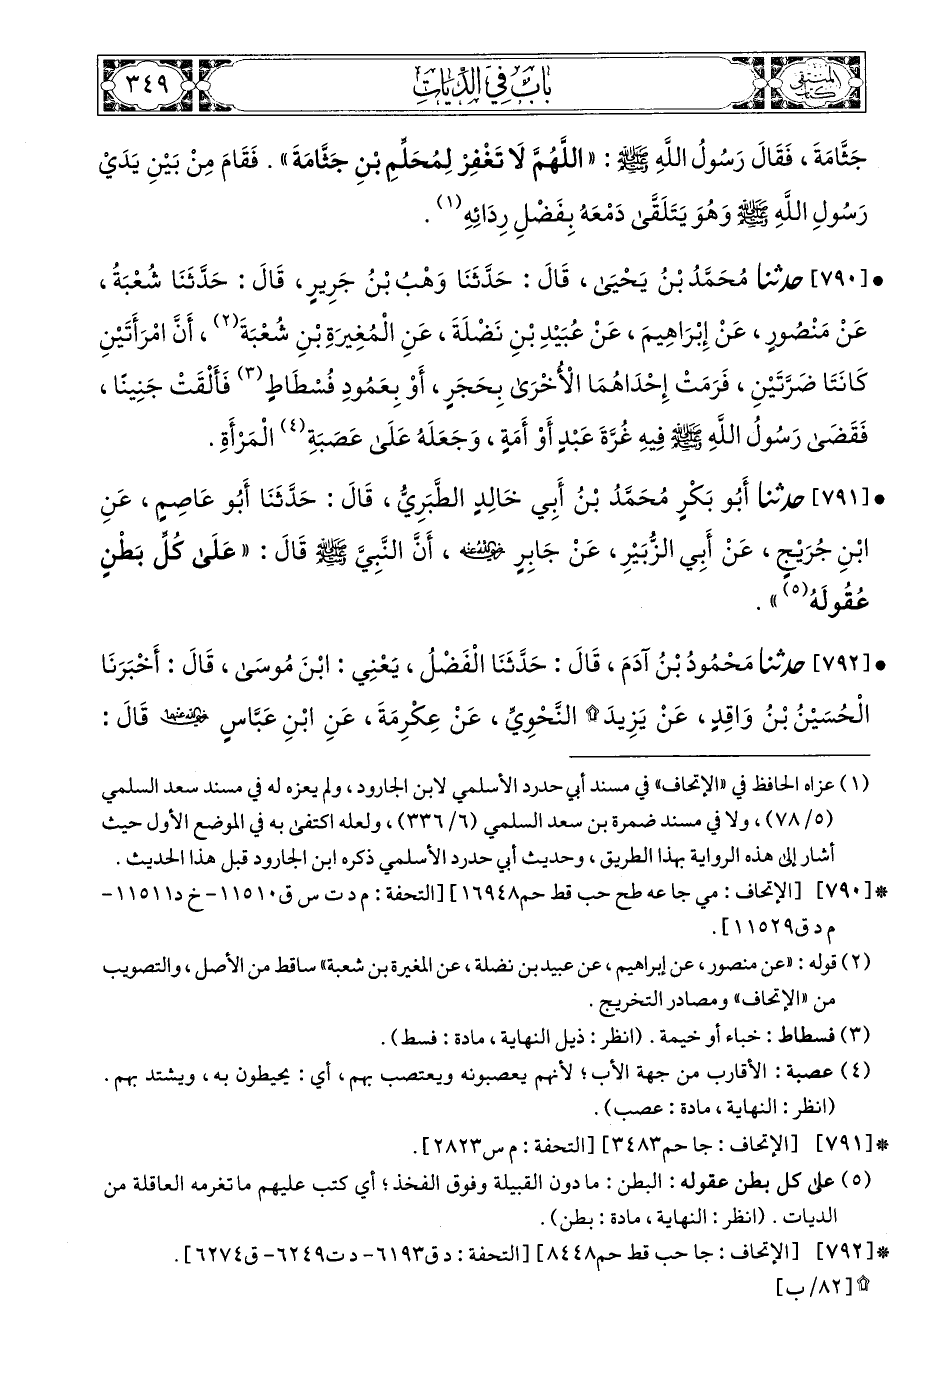 كتاب المنتقى
باب في الديات
٣٤٩
جَثَّامَةَ ، فَقَالَ رَسُولُ اللَّهِ ﷺ : «اللَّهُمَّ لَا تَغْفِرْ لِمُحَلِّمِ بْنِ جَثَّامَةَ» . فَقَامَ مِنْ بَيْنِ يَدَيْ
رَسُولِ اللَّهِ ﷺ وَهُوَ يَتَلَقَّىٰ دَمْعَهُ بِفَضْلِ رِدَائِهِ(١) .
• [٧٩٠] حدثنا مُحَمَّدُ بْنُ يَحْيَىٰ ، قَالَ : حَدَّثَنَا وَهْبُ بْنُ جَرِيرٍ ، قَالَ : حَدَّثَنَا شُعْبَةُ ،
عَنْ مَنْصُورٍ ، عَنْ إِبْرَاهِيمَ ، عَنْ عُبَيْدِ بْنِ نَضْلَةَ ، عَنِ الْمُغِيرَةِ بْنِ شُعْبَةَ(٢) ، أَنَّ امْرَأَتَيْنِ
كَانَتَا ضَرَّتَيْنِ ، فَرَمَتْ إِحْدَاهُمَا الْأُخْرَىٰ بِحَجَرٍ ، أَوْ بِعَمُودِ فُسْطَاطٍ(٣) فَأَلْقَتْ جَنِينًا ،
فَقَضَىٰ رَسُولُ اللَّهِ ﷺ فِيهِ غُرَّةَ عَبْدٍ أَوْ أَمَةٍ ، وَجَعَلَهُ عَلَىٰ عَصَبَةِ(٤) الْمَرْأَةِ .
• [٧٩١] حدثنا أَبُو بَكْرٍ مُحَمَّدُ بْنُ أَبِي خَالِدٍ الطَّبَرِيُّ ، قَالَ : حَدَّثَنَا أَبُو عَاصِمٍ ، عَنِ
ابْنِ جُرَيْجٍ ، عَنْ أَبِي الزُّبَيْرِ ، عَنْ جَابِرٍ رضي الله عنه ، أَنَّ النَّبِيَّ ﷺ قَالَ : «عَلَىٰ كُلِّ بَطْنٍ
عُقُولَهُ(٥)» .
• [٧٩٢] حدثنا مَحْمُودُ بْنُ آدَمَ ، قَالَ : حَدَّثَنَا الْفَضْلُ ، يَعْنِي : ابْنَ مُوسَىٰ ، قَالَ : أَخْبَرَنَا
الْحُسَيْنُ بْنُ وَاقِدٍ ، عَنْ يَزِيدَ ۩ النَّحْوِيِّ ، عَنْ عِكْرِمَةَ ، عَنِ ابْنِ عَبَّاسٍ رضي الله عنهما قَالَ :
(١) عزاه الحافظ في «الإتحاف» في مسند أبي حدرد الأسلمي لابن الجارود ، ولم يعزه له في مسند سعد السلمي
(٥/ ٧٨) ، ولا في مسند ضمرة بن سعد السلمي (٦/ ٣٣٦) ، ولعله اكتفى به في الموضع الأول حيث
أشار إلى هذه الرواية بهذا الطريق ، وحديث أبي حدرد الأسلمي ذكره ابن الجارود قبل هذا الحديث .
* [٧٩٠] [الإتحاف : مي جا عه طح حب قط حم١٦٩٤٨] [التحفة : م د ت س ق١١٥١٠- خ د١١٥١١-
م د ق١١٥٢٩].
(٢) قوله : «عن منصور ، عن إبراهيم ، عن عبيد بن نضلة ، عن المغيرة بن شعبة» ساقط من الأصل ، والتصويب
من «الإتحاف» ومصادر التخريج .
(٣) فسطاط : خباء أو خيمة . (انظر : ذيل النهاية ، مادة : فسط) .
(٤) عصبة : الأقارب من جهة الأب ؛ لأنهم يعصبونه ويعتصب بهم ، أي : يحيطون به ، ويشتد بهم .
(انظر : النهاية ، مادة : عصب) .
* [٧٩١] [الإتحاف : جا حم٣٤٨٣] [التحفة : م س٢٨٢٣].
(٥) على كل بطن عقوله : البطن : ما دون القبيلة وفوق الفخذ ؛ أي كتب عليهم ما تغرمه العاقلة من
الديات . (انظر : النهاية ، مادة : بطن) .
* [٧٩٢] [الإتحاف : جا حب قط حم٨٤٤٨] [التحفة : د ق٦١٩٣- د ت٦٢٤٩- ق٦٢٧٤].
۩ [٨٢/ ب]